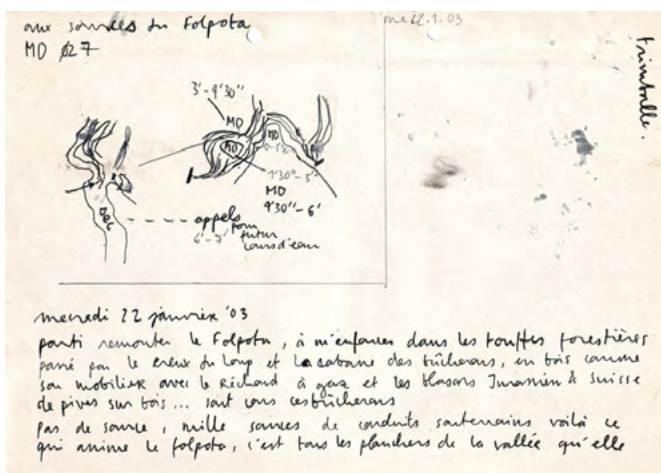 aux sources du Folpotu
MD 027
me 22.1.03
trimballe.
3'-4'30"
MD
MD
MD
1'30"-3'
MD
4'30"-6'
appels
6'-7' pour
futur
cours d'eau
mercredi 22 janvier '03
parti remonter le Folpotu, à m'enfoncer dans les touffes forestières
passé par le creux du loup et la cabane des bûcherons, en bois comme
son mobilier avec le Réchaud à gaz et les blasons Jurassien & Suisse
de pives sur bois... sont cons ces bûcherons
pas de source, mille sources de conduits souterrains voilà ce
qui anime le folpotu, c'est tous les planchers de la vallée qu'elle